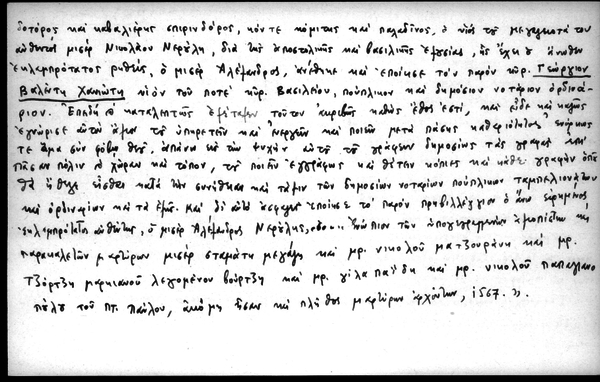 δοτόρος καὶ καβαλιέρης σπιρινδόρος, κόντε κόμιτης καὶ παλαδίνος, ὁ υἱός τοῦ μεγαλειοτάτου
αὐθεντὸς μισὲρ Νικολάου Νερούλη, διὰ τῆς ἀποστολικῆς καὶ βασιλικῆς ἐξουσίας, ἧς ἔχει ὁ ἄνωθεν
ἐκλαμπρότατος ρηθείς, ὁ μισὲρ Ἀλέξανδρος, καὶ ἐποίησε τὸν παρὸν κὺρ. Γεώργιον
Βαλέντη Χανιώτη υἱὸν τοῦ ποτὲ κὺρ. Βασιλείου, πούπλικον καὶ δημόσιον νοτάριον ὀρδινά-
ριον. Ἐπειδὴ ὁ ἐξέταξεν τοῦτον ἀκριβῶς καθὼς ἔθος ἐστί, καὶ εἶδε καὶ καλῶς
ἐγνώρισε αὐτὸν ἄξιον τοῦ ὑπηρετεῖν καὶ ἐνεργεῖν καὶ ποιεῖν μετὰ πάσης καθαριότητος
τε ἅμα σὺν φόβῳ θεοῦ, εἰς τὴν ψυχὴν αὐτοῦ τοῦ γράφειν δημοσίως τὰς γραφὰς καὶ
πᾶσαν πόλιν καὶ χώραν καὶ τόπον, τοῦ ποιεῖν ἐγγράφως καὶ θέτειν κόπιες καὶ κάθε γραφὴν ὁποῦ
θὰ ἤθελε εἶσθαι κατὰ τὴν συνήθειαν καὶ τάξιν τῶν δημοσίων νοταρίων πούπλικων ταμπελιονάτων
καὶ ὀρδιναρίων καὶ τὰ ἑξῆς. Καὶ δι' αὐτὸ ἐποίησε τὸ παρὸν πριβιλλέγγιον ὁ ἄνω εἰρημένος
ἐκλαμπρότατος αὐθέντης, ὁ μισὲρ Ἀλέξανδρος Νερούλης, ἐνώπιον τῶν ὑπογεγραμμένων ἀξιοπίστων καὶ
παρακαλετῶν μαρτύρων μισὲρ σταμάτη μεγάλη καὶ μρ. νικολοῦ ματζουράνη καὶ μρ.
τζόρτζη μαρκιανοῦ λεγομένου βούρτζη καὶ μρ. γίλα παΐδη καὶ μρ. νικολοῦ παπαγιανο
πούλου τοῦ ΠΤ. Παύλου, ἀκόμη ἦσαν καὶ πλῆθος μαρτύρων ἀρχόντων, 1567. ».